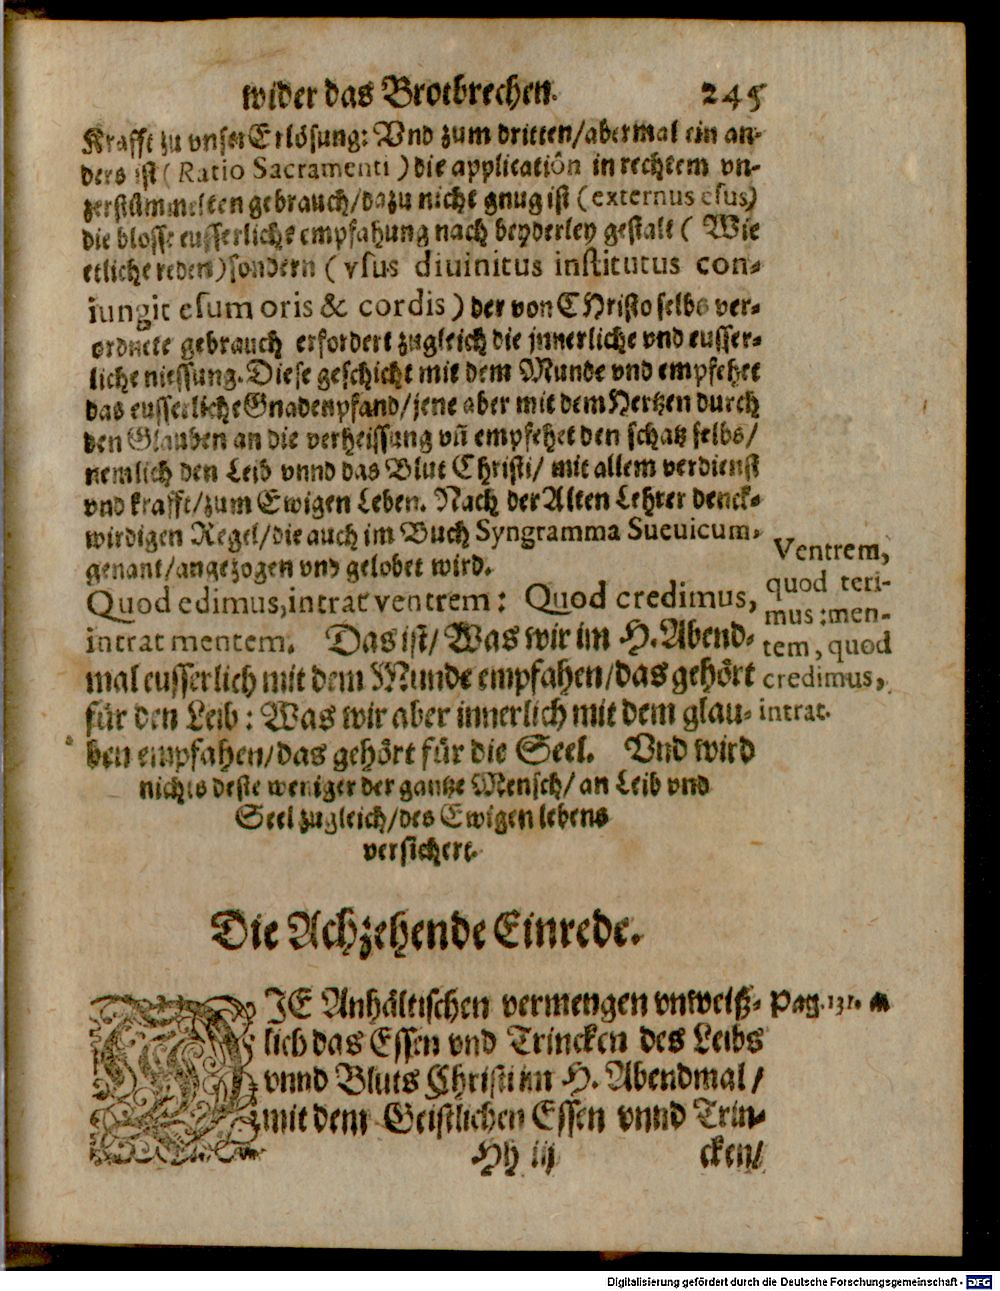 wider das Brotbrechen. 245
Krafft zu vnser Erlösung: Vnd zum dritten/abermal ein an-
ders ist (Ratio Sacramenti) die application in rechtem vn-
zerstümmelten gebrauch/dazu nicht gnug ist (externus esus)
die blosse eusserliche empfahung nach beyderley gestalt (Wie
etliche reden) sondern (vsus diuinitus institutus con-
iungit esum oris & cordis) der von CHristo selbs ver-
ordnete gebrauch erfordert zugleich die jnnerliche vnd eusser-
liche niessung. Diese geschicht mit dem Munde vnd empfehet
das eusserliche Gnadenpfand/jene aber mit dem Hertzen durch
den Glauben an die verheissung vñ empfehet den schatz selbs/
nemlich den Leib vnnd das Blut Christi/ mit allem verdienst
vnd krafft/zum Ewigen Leben. Nach der Alten Lehrer denck-
wirdigen Regel/die auch im Buch Syngramma Sueuicum-
genant/angezogen vnd gelobet wird.
Quod edimus,intrat ventrem: Quod credimus,
intrat mentem. Das ist/ Was wir im H. Abend-
mal eusserlich mit dem Munde empfahen/das gehört
für den Leib: Was wir aber innerlich mit dem glau-
ben empfahen/das gehört für die Seel. Vnd wird
nichts deste weniger der gantze Mensch/ an Leib vnd
Seel zugleich/des Ewigen lebens
versichert.
Ventrem,
quod teri-
mus:men-
tem, quod
credimus,
intrat.
Die Achzehende Einrede.
DIE Anhältischen vermengen vnweiß-
lich das Essen vnd Trincken des Leibs
vnnd Bluts Christi im H. Abendmal/
mit dem Geistlichen Essen vnnd Trin-
Pag. 131.
Hh iij cken/
Digitalisierung gefördert durch die Deutsche Forschungsgemeinschaft - DFG